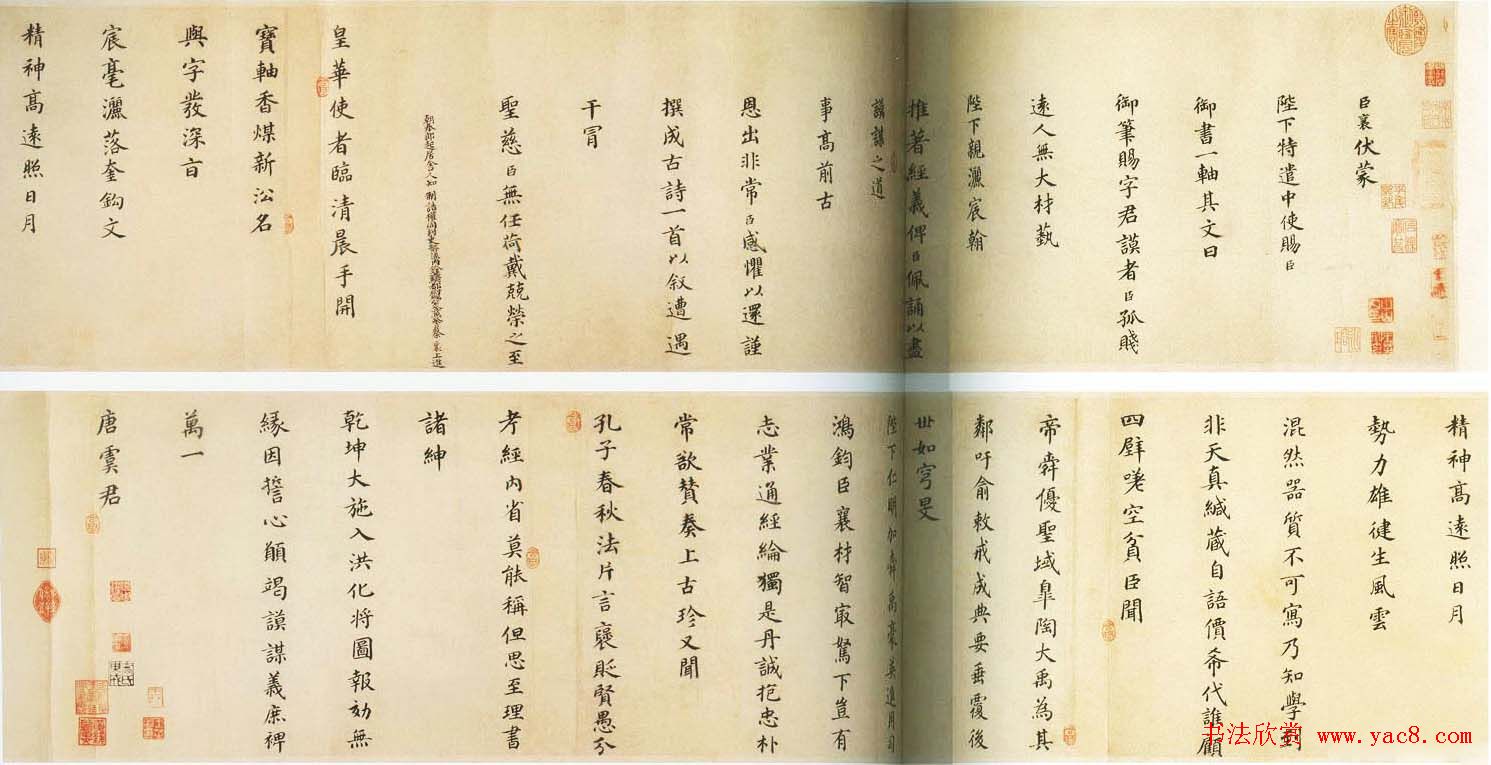 臣襄伏蒙
陛下特遣中使賜臣
御書一軸其文曰
御筆賜字君謨者臣孤賤
遠人無大材藝
陛下親灑宸翰
推著經義俾臣佩誦以盡
謨謀之道
事高前古
恩出非常臣感懼以還謹
撰成古詩一首以叙遭遇
干冒
聖慈臣無任荷戴兢榮之至
朝奉郎起居舍人知制誥權同判吏部流內銓
臣蔡襄上進
皇華使者臨清晨手開
寶軸香煤新沿名
與字發深旨
宸毫灑落奎鈎文
精神高遠照日月
精神高遠照日月
勢力雄健生風雲
混然器質不可寫乃知學到
非天真緘藏自語價希代誰顧
四壁嗟空貧臣聞
帝舜優聖域皐陶大禹為其
鄰吁俞敕戒成典要垂覆後
世如穹旻
陛下仁明加舜禹豪英進用司
鴻鈞臣襄材智最駑下豈有
志業通經綸獨是丹誠抱忠朴
常欲贊奏上古珍又聞
孔子春秋法片言褒貶賢愚分
考經內省莫能稱但思至理書
諸紳
乾坤大施入洪化將圖報効無
緣因誓心願竭謨謀義庶裨
萬一
唐虞君
书法欣赏 www.yac8.com